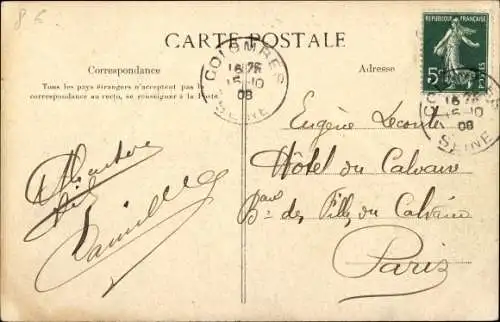 86
CARTE POSTALE
Correspondance
Adresse
Tous les pays étrangers n'acceptent pas la
correspondance au recto, se renseigner à la Poste.
COLOMBES
16 25
5-10
08
SEINE
REPUBLIQUE FRANÇAISE
5c
POSTES
16 25
5-10
08
SEINE
Eugène Lecomte
Hôtel du Calvaire
Bard des Filles du Calvaire
Paris